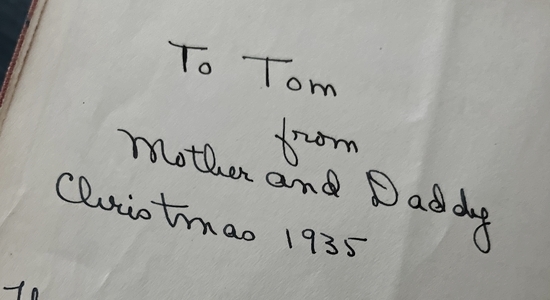 To Tom
from
Mother and Daddy
Christmas 1935